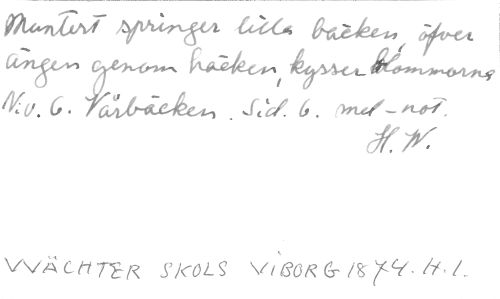 Muntert springer lilla bäcken, öfver
ängen genom häcken, kysser blommorna
N:o. 6. Vårbäcken. Sid. 6. mel-not.
H. W.
WÄCHTER SKOLS VIBORG 1874. H. 1.